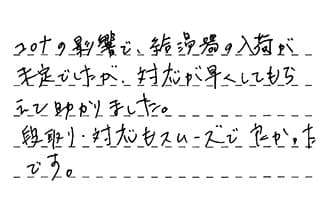 コロナの影響で、給湯器の入荷が
未定でしたが、対応が早くしてもら
えて助かりました。
段取り・対応もスムーズでよかった
です。